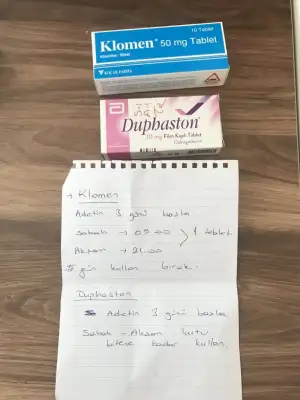 10 Tablet
Klomen® 50 mg Tablet
Klomifen Sitrat
KOÇAK FARMA
Duphaston®
10 mg Film Kaplı Tablet
Didrogesteron
→ Klomen
Adetin 3. günü başla
Sabah → 09.00
1 tablet
Akşam → 21.00
5 gün kullan bırak.
Duphaston
Adetin 3 günü başla
Sabah - Akşam kutu
bitene kadar kullan.